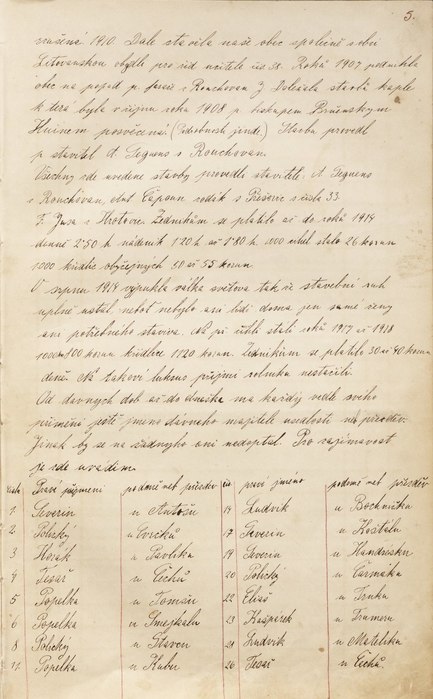 5.
vražené 1910. Dale stavila naše obec společně s obcí
Litovanskou obydlí pro říd učitele čís 32. Roků 1907 podnikla
obec na popud p. faráře z Rouchovan J Doležela starbu kaple
která byla v říjnu roku 1908 p. biskupem Brněnským
Huinem posvěcená (Podrobnosti jinde.) Starbu provedl
p. stavitel A Seguens z Rouchovan.
Všechny zde uvedené stavby provedli stavitelé: A Seguens
z Rouchovan, Čapoun rodák z Přešovic z čísla 33
Fr. Jusa z Hrotovic. Zedníkům se platilo až do roků 1914
denně 2·50 h nádeník 1·20 h až 1·80 h. 1000 cihel stalo 26 korun
1000 křidlic obyčejných 50 až 55 korun.
V srpnu 1914 vypukla velká světová tak že stavební ruch
uplně ustal, neboť nebylo ani lidí doma jen samé ženy
ani potřebného staviva. Až při cihle stáli roků 1917 až 1918
1000 = 700 korun křidlice 1720 korun. Zedníkům se platilo 30 až 40 korun
denně. Na takový luksus příjmy rolníka nestačili.
Od dávných dob až do dneška má každý vedle svého
příjmení ještě jméno dávného majitele usedlosti neb přezdív.
Jinak by se na žádnýho ani nedoptal. Pro zajímavost
je zde uvádím
číslo Pravé příjmení podomě neb přezdiv čís pravé jméno podomě neb přezdiv
1. Severin u Antošů 14 Ludvik u Bochníčka
2 Polický u 17 Severin u Koštálů
3 Hošák u Pavlíka 19 Severin u
4 Tesař u Čichů 20 Polický u Čermáka
5 Popelka u Tomšů 22 Eliáš u Trnka
6 Popelka u Smejkalů 23 Kašpárek u
8 Polický u 24 Ludvik u Matelska
11. Popelka u Kuber 26 Tesař u Čichů.